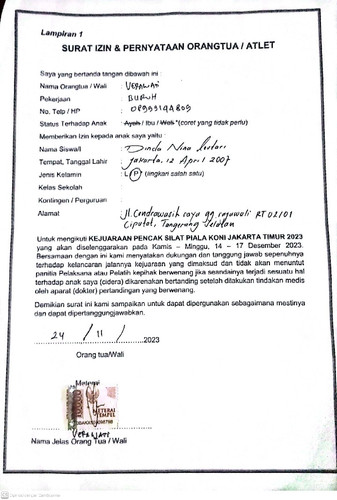 Lampiran 1
SURAT IZIN & PERNYATAAN ORANGTUA / ATLET
Saya yang bertanda tangan dibawah ini :
Nama Orangtua / Wali : VERAWATI
Pekerjaan : BURUH
No. Telp / HP :
Status Terhadap Anak : Ayah / Ibu / Wali *(coret yang tidak perlu)
Memberikan Izin kepada anak saya yaitu :
Nama Siswa/i : Dinda Nina
Tempat, Tanggal Lahir : Jakarta, 12 April 2007
Jenis Kelamin : L / P (lingkari salah satu)
Kelas Sekolah :
Kontingen / Perguruan :
Alamat : Jl. Cendrawasih raya gg RT 02/01
Ciputat, Tangerang Selatan
Untuk mengikuti KEJUARAAN PENCAK SILAT PIALA KONI JAKARTA TIMUR 2023
yang akan diselenggarakan pada Kamis – Minggu, 14 – 17 Desember 2023.
Bersamaan dengan ini kami menyatakan dukungan dan tanggung jawab sepenuhnya
terhadap kelancaran jalannya kejuaraan yang dimaksud dan tidak akan menuntut
panitia Pelaksana atau Pelatih kepihak berwenang jika seandainya terjadi sesuatu hal
terhadap anak saya (cidera) dikarenakan bertanding setelah dilakukan tindakan medis
oleh aparat (dokter) pertandingan yang berwenang.
Demikian surat ini kami sampaikan untuk dapat dipergunakan sebagaimana mestinya
dan dapat dipertanggungjawabkan.
24 / 11 / 2023
Orang tua/Wali
METERAI
TEMPEL
VERAWATI
Nama Jelas Orang Tua / Wali